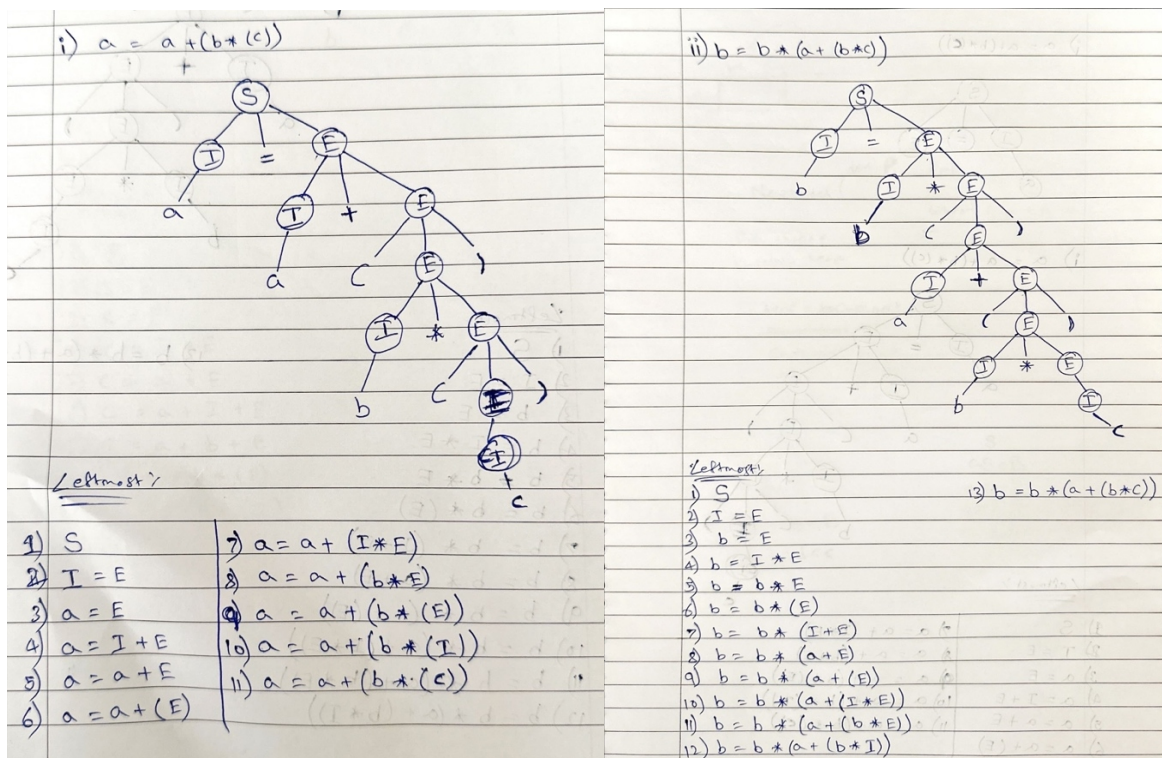 i) a = a + (b * (c))
+
S
I = E
a I + E
a ( E )
I * E
b ( E )
I
c
Leftmost:
1) S
2) I = E
3) a = E
4) a = I + E
5) a = a + E
6) a = a + (E)
7) a = a + (I * E)
8) a = a + (b * E)
9) a = a + (b * (E))
10) a = a + (b * (I))
11) a = a + (b * (c))
ii) b = b * (a + (b * c))
S
I = E
b I * E
b ( E )
I + E
a ( E )
I * E
b I
c
Leftmost:
1) S
2) I = E
3) b = E
4) b = I * E
5) b = b * E
6) b = b * (E)
7) b = b * (I + E)
8) b = b * (a + E)
9) b = b * (a + (E))
10) b = b * (a + (I * E))
11) b = b * (a + (b * E))
12) b = b * (a + (b * I))
13) b = b * (a + (b * c))